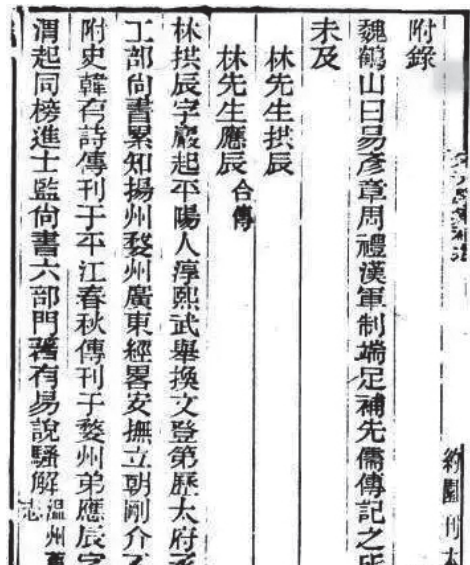 約園刊
附錄
魏鶴山曰易彥章周禮漢軍制端足補先儒傳記之所
未及
林先生拱辰
林先生應辰合傳
林拱辰字巖起平陽人淳熙武舉換文登第歷太府丞
工部尙書累知揚州婺州廣東經畧安撫立朝剛介不
附史韓有詩傳刊于平江春秋傳刊于婺州弟應辰字
渭起同榜進士監尙書六部門著有易說騷解溫州舊志